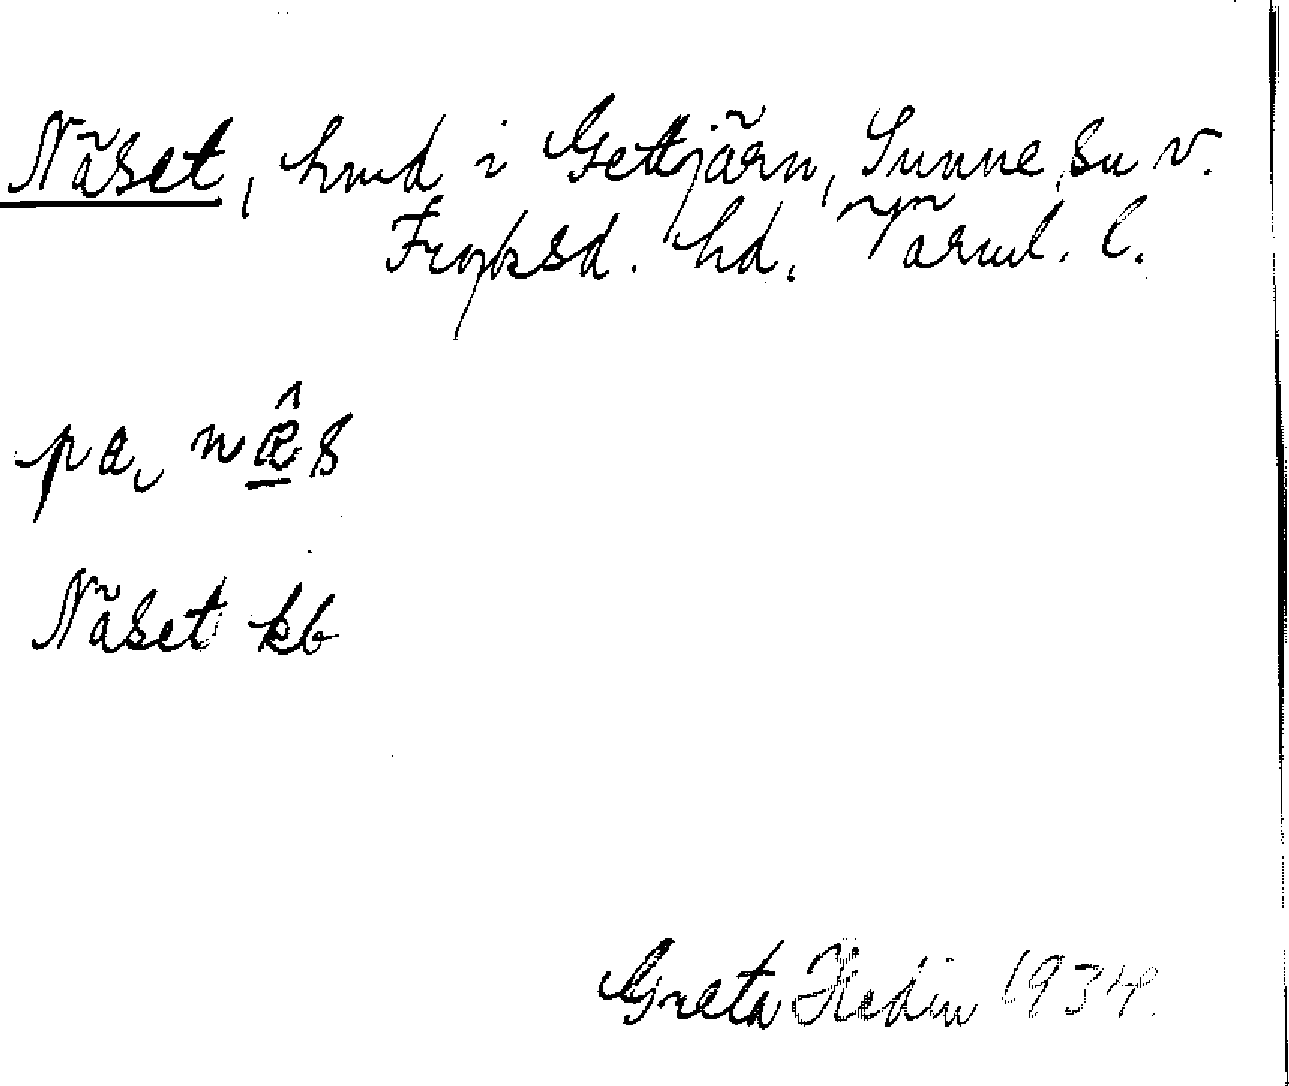 Näset, hmd i Gettjärn, Sunne, su v.
Fryksd. hd. Värml. l.
pa, næ̂s
Näset kb
Greta Hedin 1934.